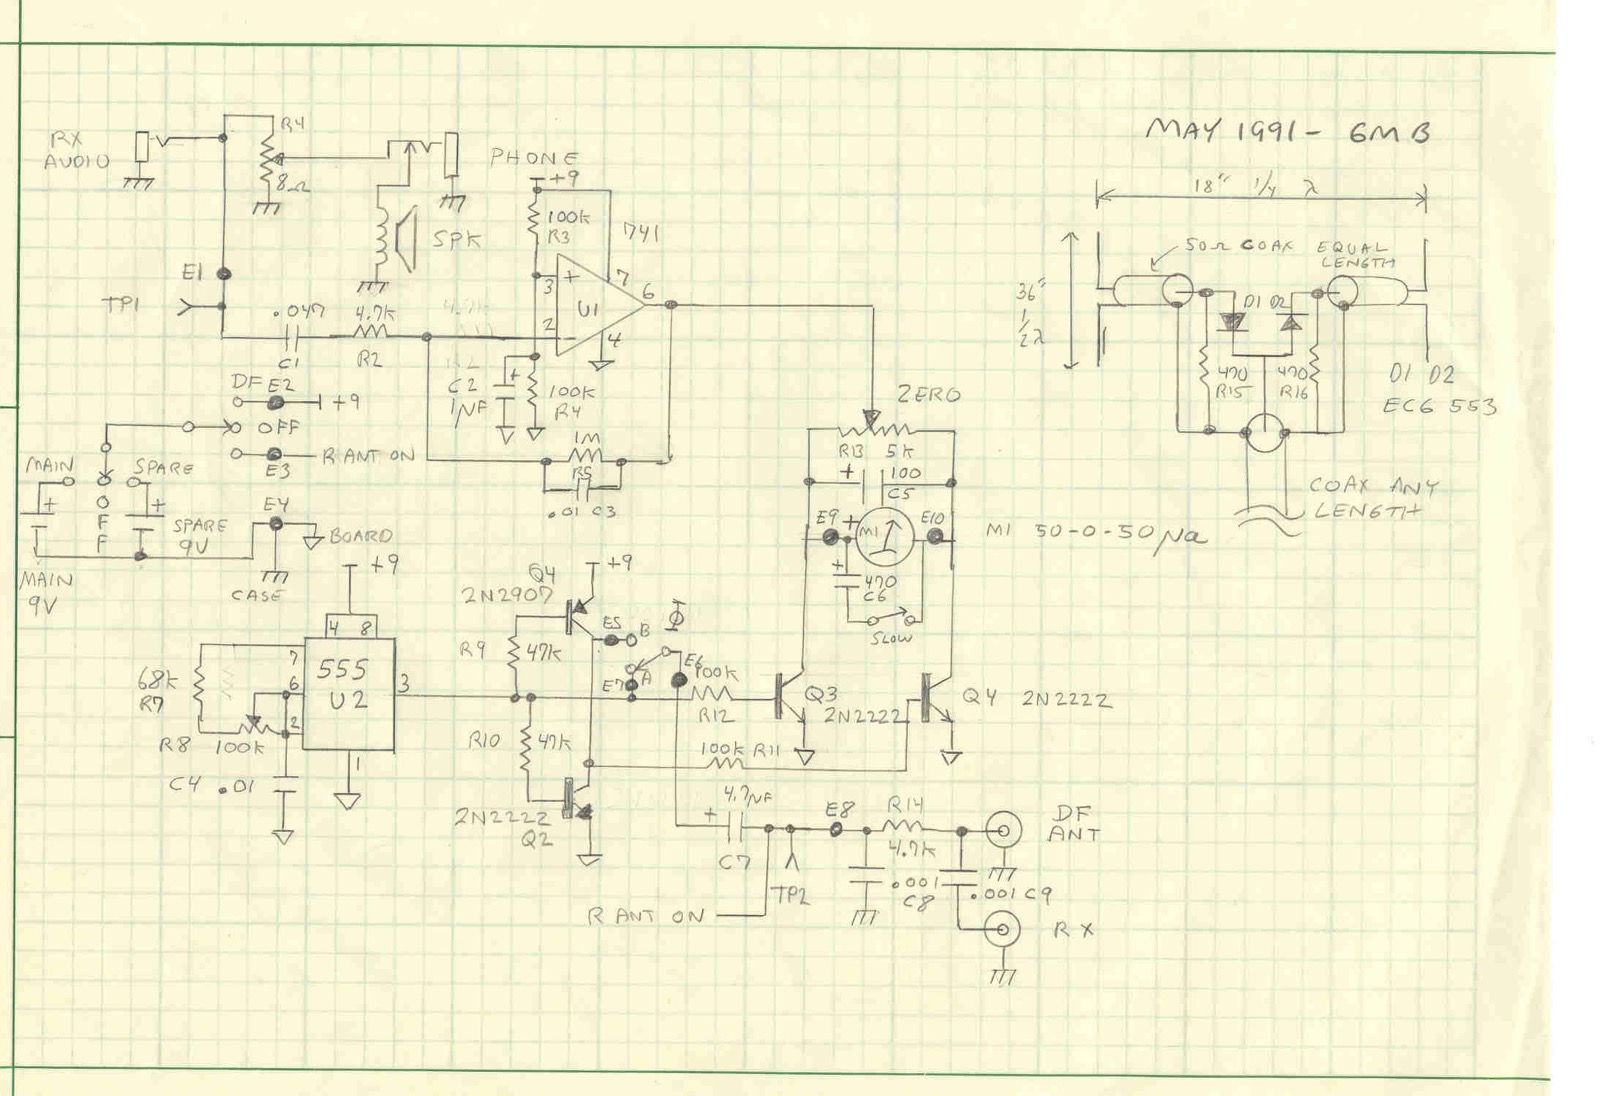 MAY 1991 - GMB
RX
AUDIO
R4
8Ω
PHONE
+9
SPK
100K
R3
741
3
+
7
6
U1
2
-
4
E1
TP1
.047
C1
4.7K
R2
4.7K
R2
+
C2
1µF
100K
R4
1M
R5
.01 C3
DF E2
+9
OFF
R ANT ON
E3
MAIN
SPARE
+
O
F
F
+
SPARE
9V
E4
BOARD
CASE
MAIN
9V
+9
4 8
7
555
U2
6
3
2
1
68K
R7
R8 100K
C4 .01
Q4
2N2907
+9
R9
47K
E5
B
Φ
E7
A
E6
100K
R12
R10
47K
2N2222
Q2
100K R11
Q3
2N2222
Q4 2N2222
ZERO
R13 5K
+
100
C5
E9
+
M1
E10
M1 50-0-50µa
+
470
C6
SLOW
4.7µF
+
C7
TP2
E8
R14
4.7K
.001
C8
.001 C9
DF
ANT
RX
R ANT ON
18" 1/4 λ
50Ω COAX
EQUAL
LENGTH
36"
1/2λ
D1 D2
470
R15
470
R16
D1 D2
ECG 553
COAX ANY
LENGTH